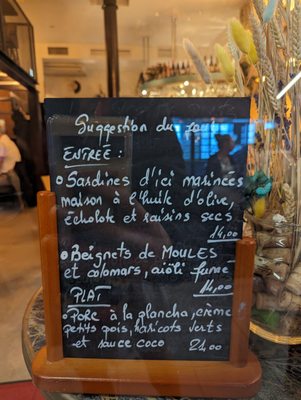 Suggestion du jour
ENTRÉE :
Sardines d'ici marinées
maison à l'huile d'olive,
échalote et raisins secs
14,00
Beignets de MOULES
et calamars, aïoli fumé
14,00
PLAT
PORC à la plancha, crème
petits pois, haricots verts
et sauce coco 21,00